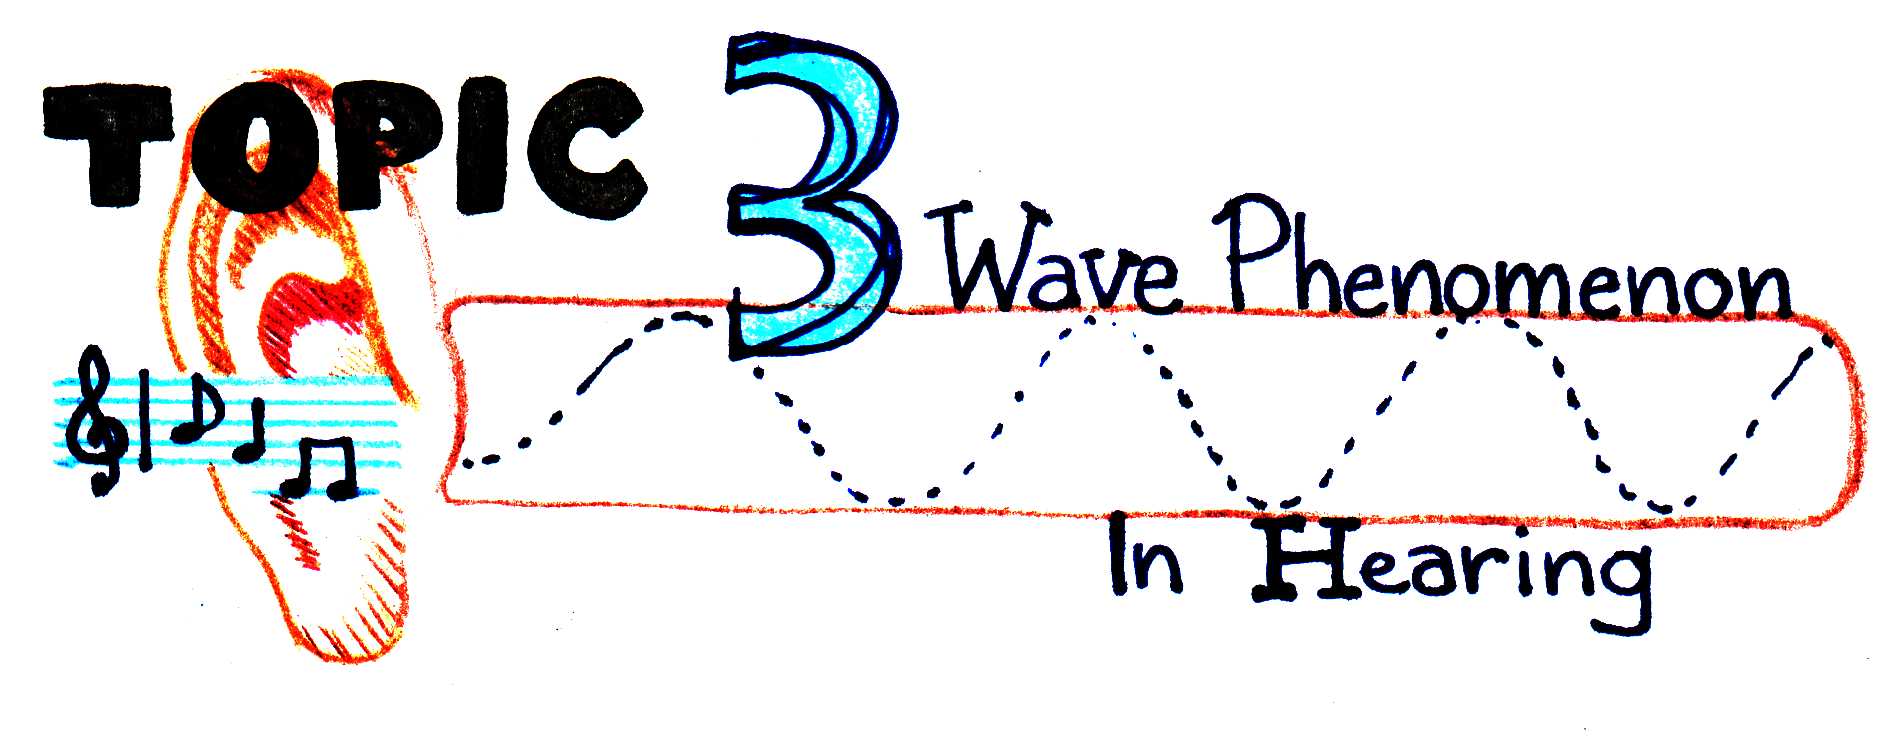 TOPIC 3
Wave Phenomenon
In Hearing